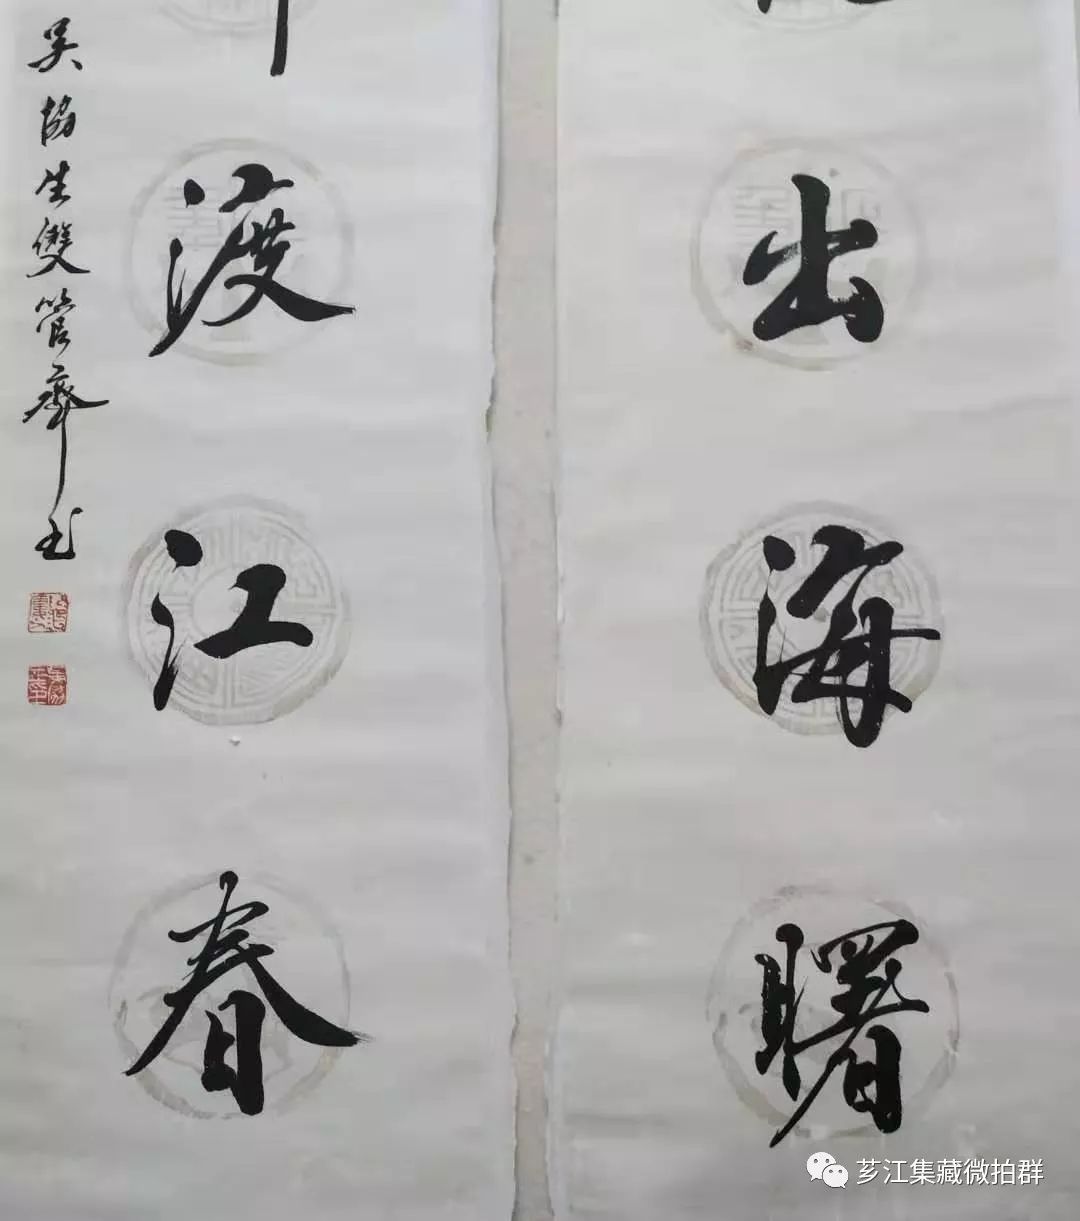 出海曙
渡江春
吴協生雙管齋主
芗江集藏微拍群